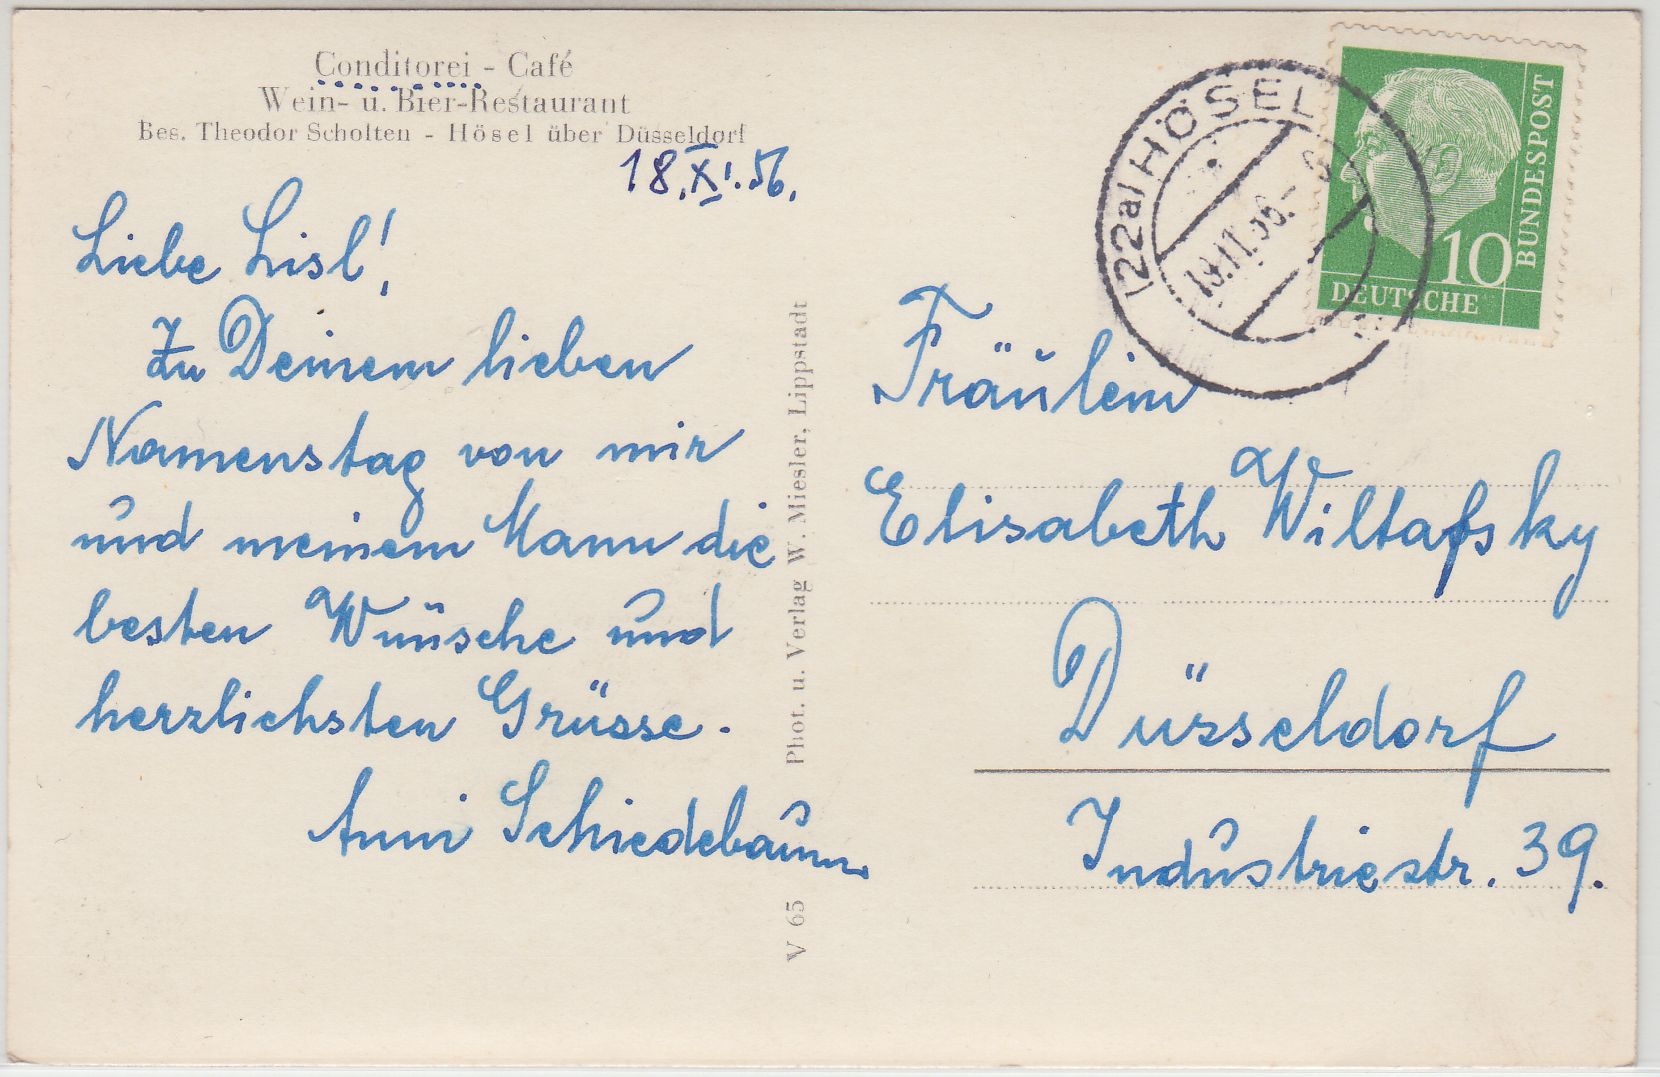 Conditorei - Café
Wein- u. Bier-Restaurant
Bes. Theodor Scholten - Hösel über Düsseldorf
18.XI.56.
Liebe Lisl!
Zu Deinem lieben
Namenstag von mir
und meinem Mann die
besten Wünsche und
herzlichsten Grüsse.
Anni Schiedebaum.
Phot. u. Verlag W. Miesler, Lippstadt
V 65
(22a) HÖSEL
19.11.56.-
10
DEUTSCHE
BUNDESPOST
Fräulein
Elisabeth Wiltafsky
Düsseldorf
Industriestr. 39.